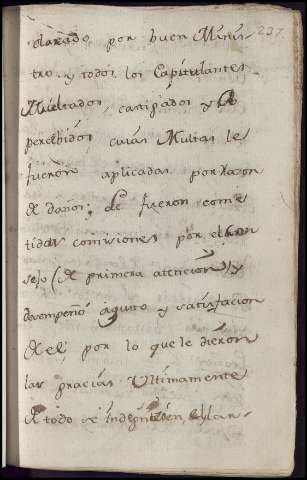 237
clarado por buen Minis
tro. y todos los Capitulantes
Multados, castigados y A
percebidos cuias Multas le
fueron aplicadas por razon
de daños; le fueron come
tidas comisiones por el Con
sejo (de primera atencion) y
desempeñó a gusto y satisfacion
de el, por lo que le dieron
las gracias Ultimamente
de todo se